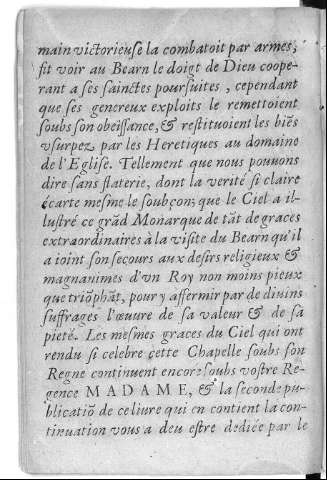 main victorieuse la combatoit par armes,
fit voir au Bearn le doigt de Dieu coope-
rant a ses sainctes poursuites, cependant
que ses genereux exploits le remettoient
soubs son obeissance, & restituoient les biẽs
vsurpez par les Heretiques au domaine
de l'Eglise. Tellement que nous pouuons
dire sans flaterie, dont la verité si claire
écarte mesme le soubçon; que le Ciel a il-
lustré ce grãd Monarque de tãt de graces
extraordinaires à la visite du Bearn qu'il
a ioint son secours aux desirs religieux &
magnanimes d'vn Roy non moins pieux
que triõphãt, pour y affermir par de diuins
suffrages l'œuure de sa valeur & de sa
pieté. Les mesmes graces du Ciel qui ont
rendu si celebre cette Chapelle soubs son
Regne continuent encore soubs vostre Re-
gence MADAME, & la seconde pu-
blicatiõ de ce liure qui en contient la con-
tinuation vous a deu estre dediée par le